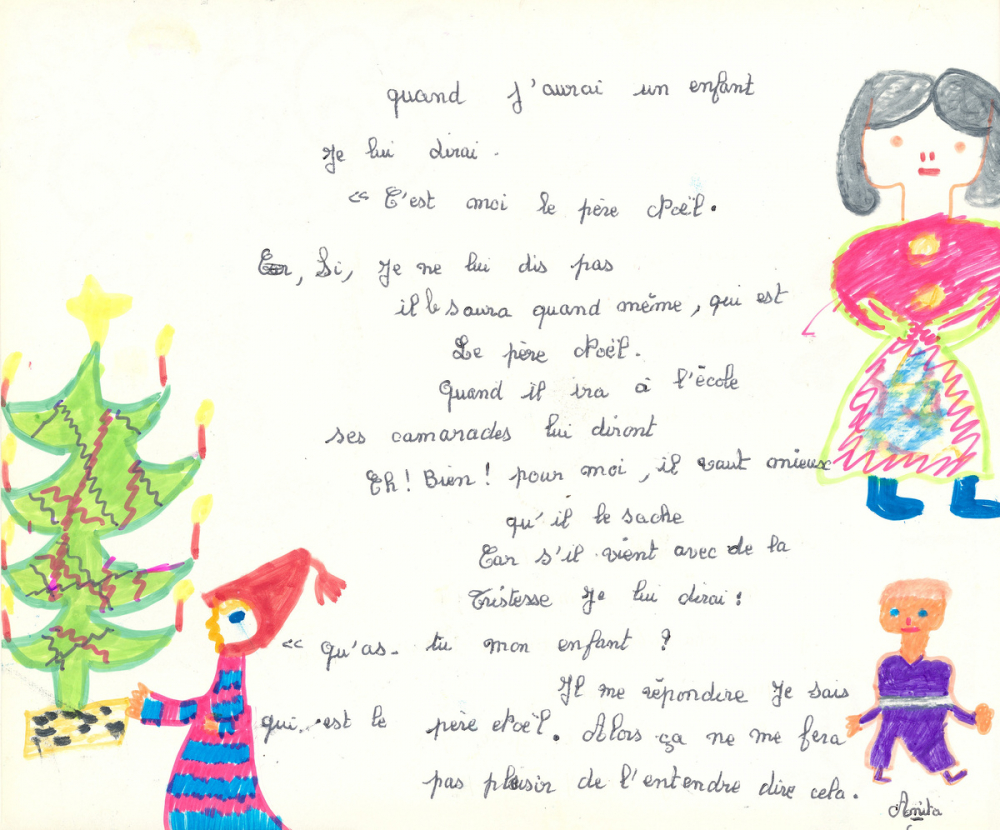 quand j'aurai un enfant
Je lui dirai.
« C'est moi le père Noël.
Car, Si, Je ne lui dis pas
il le saura quand même, qui est
Le père Noël.
Quand il ira à l'école
ses camarades lui diront
Eh! Bien! pour moi, il vaut mieux
qu'il le sache
Car s'il vient avec de la
Tristesse Je lui dirai:
« qu'as-tu mon enfant ?
Il me répondire Je sais
qui est le père Noël. Alors ça ne me fera
pas plaisir de l'entendre dire cela.
Anita